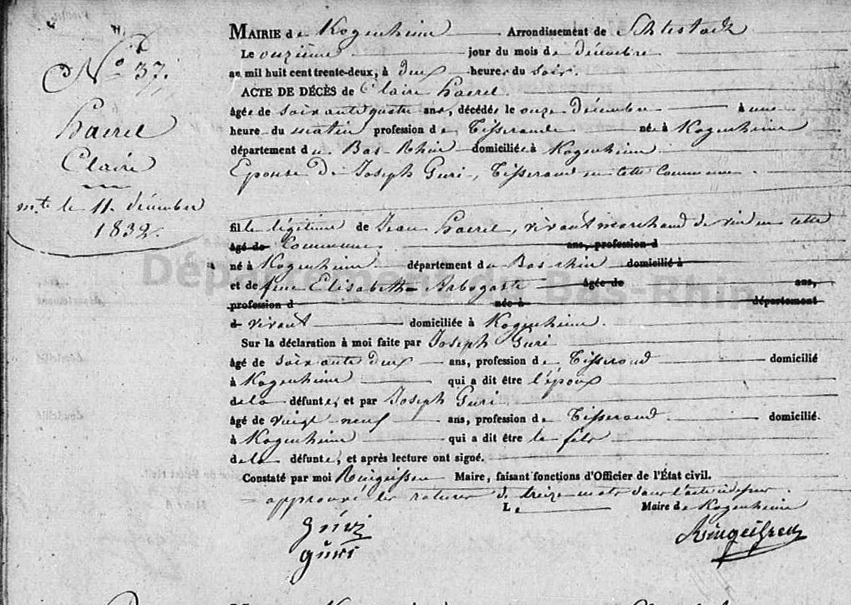 N° 37.
Haerel
Claire
mte le 11 décembre
1832.
MAIRIE de Kogenheim Arrondissement de Schlestadt
Le onzième jour du mois de décembre
an mil huit cent trente-deux, à deux heures du soir.
ACTE DE DÉCÈS de Claire Haerel
âgée de soixante quatre ans, décédée le onze décembre à une
heure du matin profession de Tisserande née à Kogenheim
département du Bas-Rhin domiciliée à Kogenheim
Epouse de Joseph Guri, Tisserand en cette Commune.
fille légitime de Jean Haerel, vivant marchand de vin en cette
âgé de Commune ans, profession d
né à Kogenheim département du Bas rhin domicilié à
et de feue Elisabeth Arbogaste âgée de ans,
profession d née à département
d vivant domiciliée à Kogenheim.
Sur la déclaration à moi faite par Joseph Guri
âgé de soixante deux ans, profession de Tisserand domicilié
à Kogenheim qui a dit être l'époux
de la défunte, et par Joseph Guri
âgé de vingt neuf ans, profession de Tisserand domicilié.
à Kogenheim qui a dit être le fils
de la défunte, et après lecture ont signé.
Constaté par moi Ringeissen Maire, faisant fonctions d'Officier de l'État civil.
approuvé les ratures de treize mots dans l'acte
Le Maire de Kogenheim
güri
güri
Ringeissen
Département du Bas-Rhin